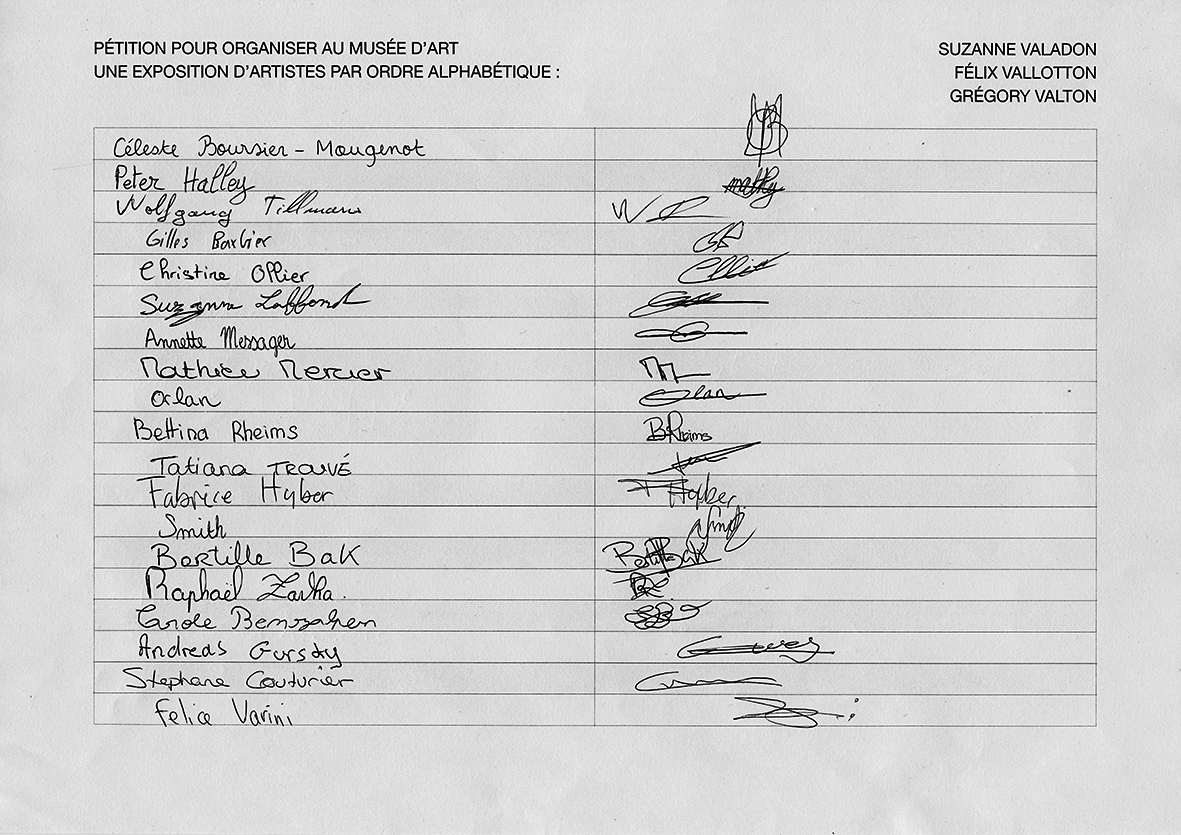 PÉTITION POUR ORGANISER AU MUSÉE D'ART
UNE EXPOSITION D'ARTISTES PAR ORDRE ALPHABÉTIQUE :
SUZANNE VALADON
FÉLIX VALLOTTON
GRÉGORY VALTON
Céleste Boursier - Mougenot
Peter Halley
Wolfgang Tillmans
Gilles Barbier
Christine Ollier
Suzanne
Annette Messager
Mathieu Mercier
Orlan
Bettina Rheims BRheims
Tatiana TROUVÉ
Fabrice Hyber Hyber
Smith
Bertille Bak
Raphaël Zarka.
Carole
Andreas Gursky
Stephane Couturier
Felice Varini